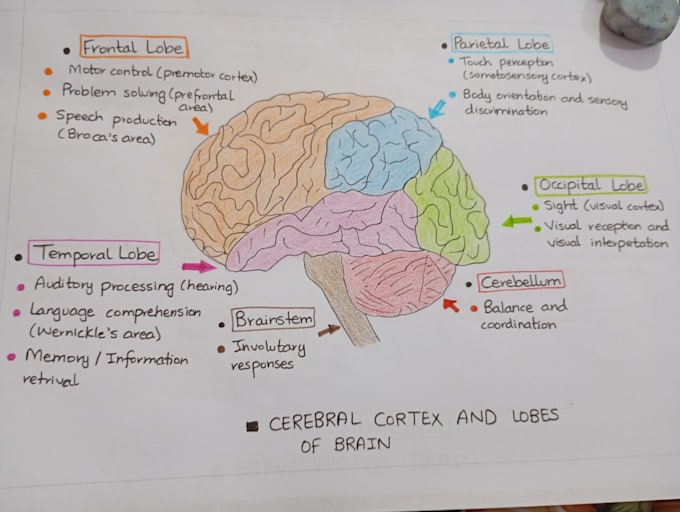 Frontal Lobe
Motor control (premotor cortex)
Problem solving (prefrontal
area)
Speech production
(Broca's area)
Parietal Lobe
Touch perception
(somatosensory cortex)
Body orientation and sensory
discrimination
Occipital Lobe
Sight (visual cortex)
Visual reception and
visual interpetation
Temporal Lobe
Auditory processing (hearing)
Language comprehension
(Wernickle's area)
Memory / Information
retrival
Brainstem
Involutary
responses
Cerebellum
Balance and
coordination
CEREBRAL CORTEX AND LOBES
OF BRAIN